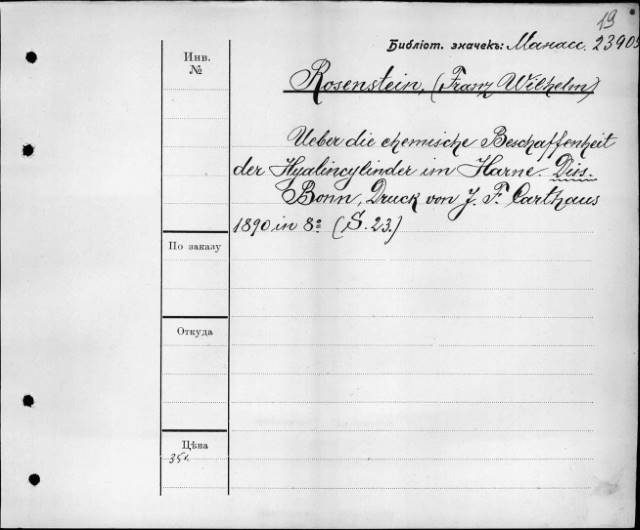 19
Библіот. значекъ: Манасс. 23905
Инв.
№
Rosenstein, (Franz Wilhelm)
Ueber die chemische Beschaffenheit
der Hyalincylinder im Harne. Diss.
Bonn, Druck von J. F. Carthaus
1890 in 8º (S. 23.)
По заказу
Откуда
Цѣна
35к.